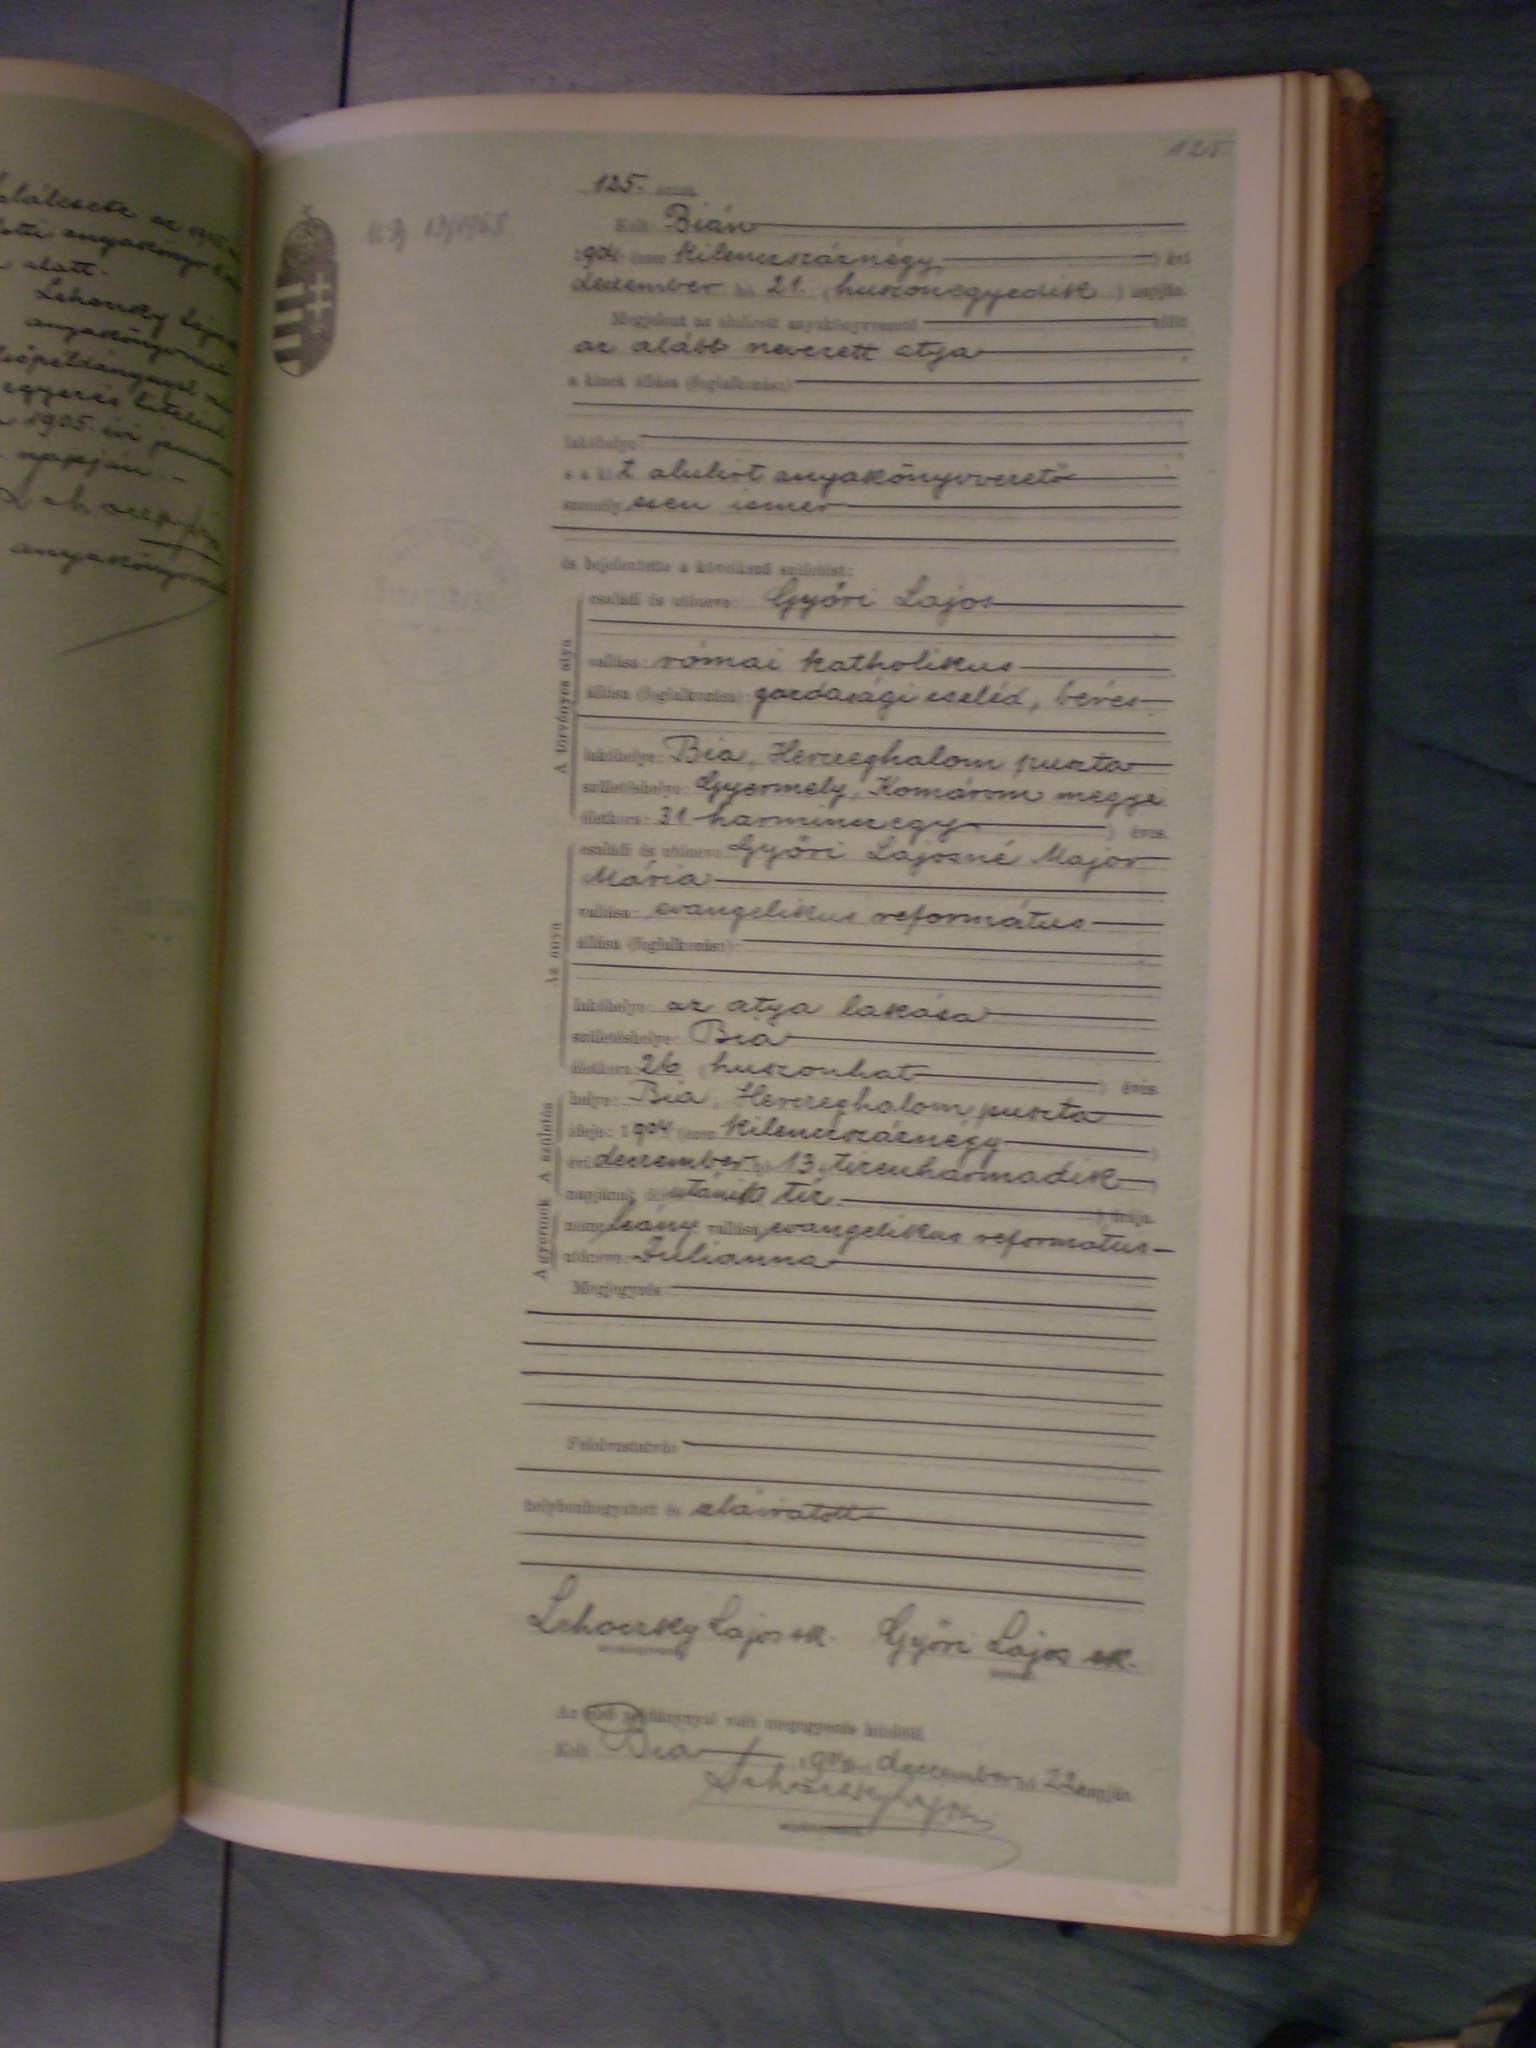 alatt.
Lehoczky Lajos
1905. évi
napján.-
125.
125. szám.
Kelt: Bián
1904. (ezer kilenczszáznégy) évi
deczember hó 21. (huszonegyedik) napján
Megjelent az alulirott anyakönyvvezető előtt
az alább nevezett atya
a kinek állása (foglalkozása):
lakóhelye:
s a kit alulirt anyakönyvvezető
személyesen ismer
és bejelentette a következő születést:
A törvényes atya
családi és utóneve: Győri Lajos
vallása: római katholikus
állása (foglalkozása): gazdasági cseléd, béres
lakóhelye: Bia, Herczeghalom puszta
születéshelye: Gyermely, Komárom megye
életkora: 31 harminczegy) éves.
Az anya
családi és utóneve: Győri Lajosné Major
Mária
vallása: evangelikus református
állása (foglalkozása):
lakóhelye: az atya lakása
születéshelye: Bia
életkora: 26 (huszonhat) éves.
A születés
helye: Bia, Herczeghalom puszta
ideje: 1904 (ezer kilenczszáznégy)
évi deczember hó 13 (tizenharmadik)
napjának délutáni tíz) órája.
A gyermek
neme: leány vallása: evangelikus református
utóneve: Julianna
Megjegyzés:
Felolvastatván
helybenhagyatott és aláiratott
Lehoczky Lajos sk. Győri Lajos sk.
anyakönyvvezető
Az első példánynyal való megegyezés hitéül.
Kelt Bia 1904 évi deczember hó 22 napján
Lehoczky Lajos
anyakönyvvezető